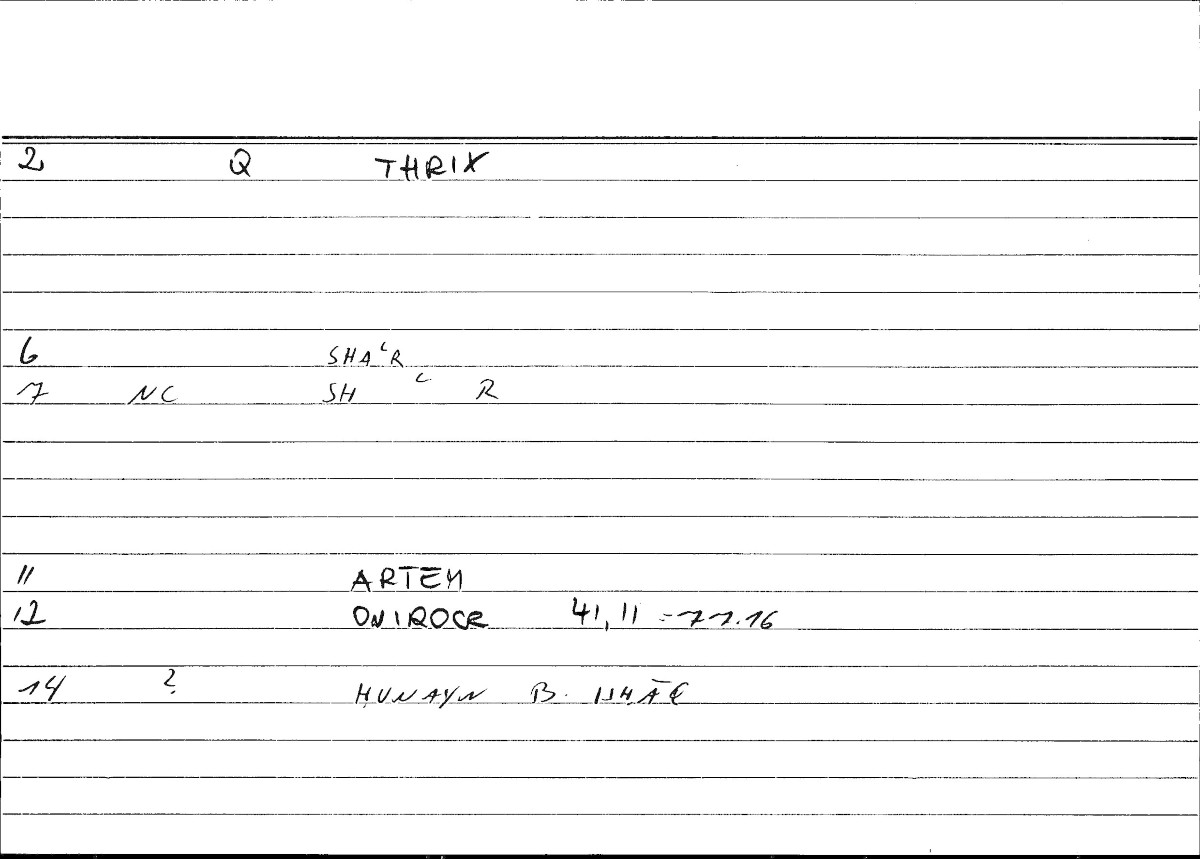 2 Q THRIX
6 SHAʿR
7 NC SH ʿ R
11 ARTEM
12 ONIROCR 41,11 = 77.16
14 ? ḤUNAYN B. ISḤĀQ